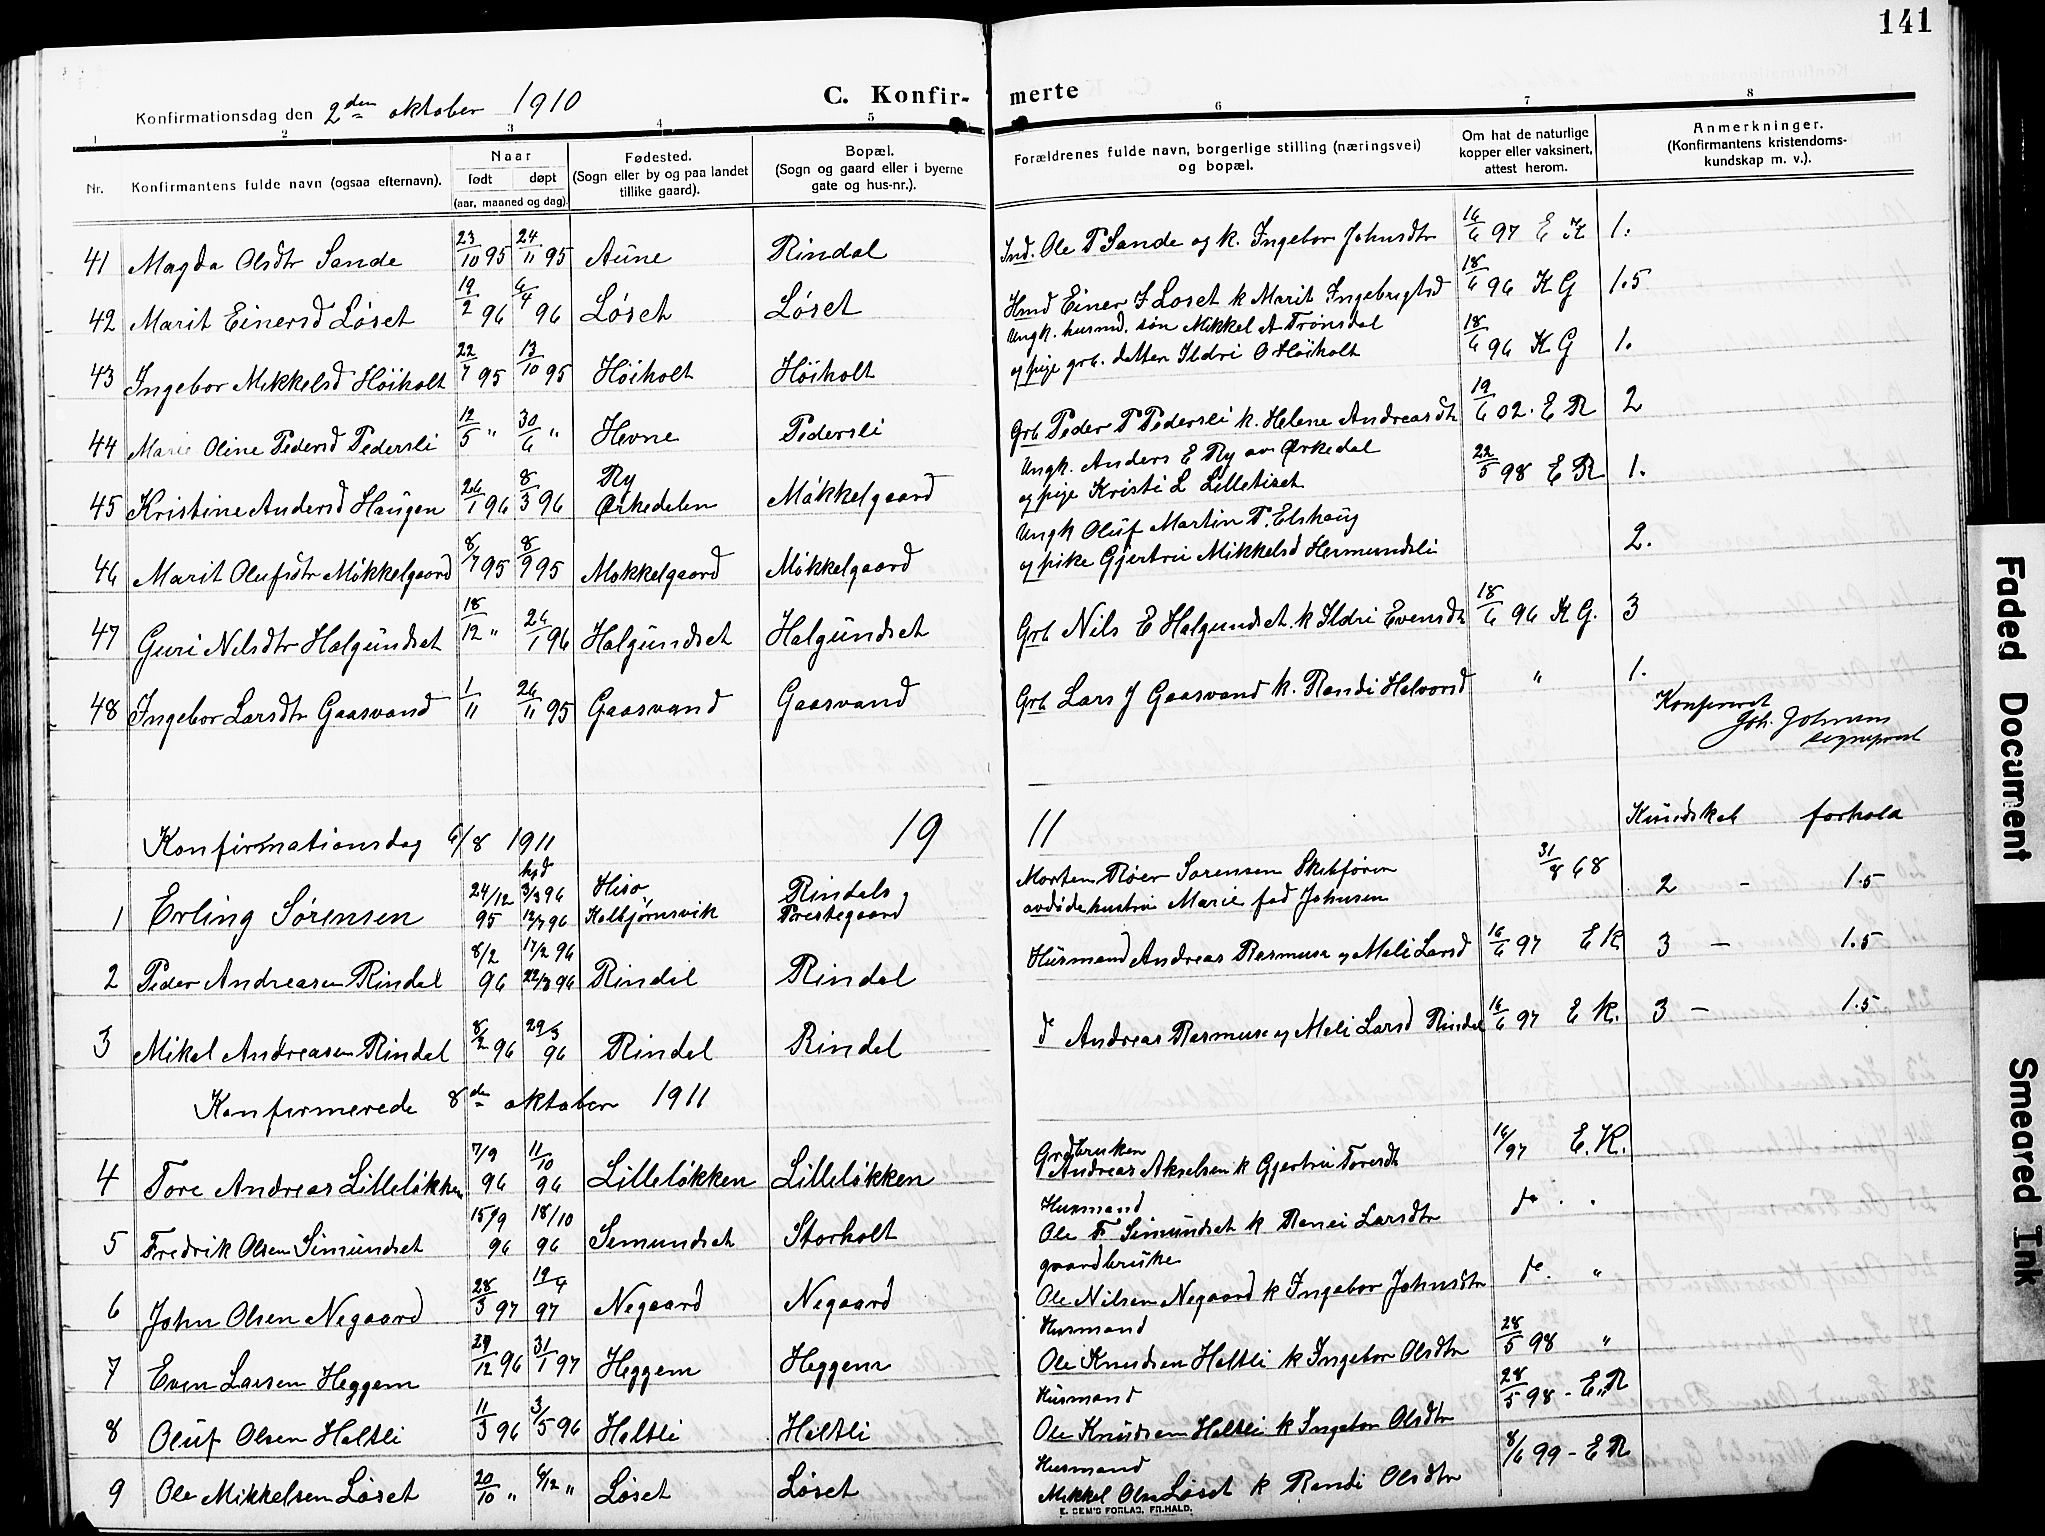 141
Konfirmationsdag den 2den oktober 1910
C. Konfir- merte
1 2 3 4 5 6 7 8
Nr.
Konfirmantens fulde navn (ogsaa efternavn).
Naar
født døpt
(aar, maaned og dag).
Fødested.
(Sogn eller by og paa landet
tillike gaard).
Bopæl.
(Sogn og gaard eller i byerne
gate og hus-nr.).
Forældrenes fulde navn, borgerlige stilling (næringsvei)
og bopæl.
Om hat de naturlige
kopper eller vaksinert,
attest herom.
Anmerkninger.
(Konfirmantens kristendoms-
kundskap m. v.).
41 Magda Olsdtr Sande 23/10 95 24/11 95 Aune Rindal Ind. Ole P Sande og k. Ingebor Johnsdtr 16/6 97 E K 1.
42 Marit Einersd Løset 19/2 96 6/4 96 Løset Løset Hmd Einer I Løset k Marit Ingebrigtsd 18/6 96 K G 1.5
43 Ingebor Mikkelsd Høiholt 22/7 95 13/10 95 Høiholt Høiholt Ungk. husmd. søn Mikkel A Trønsdal
og pige grb. datter Ildri O Høiholt 18/6 96 K G 1.
44 Marie Oline Pedersd Pedersli 12/5 " 30/6 " Hevne Pedersli Grb Peder P Pedersli k. Helene Andreasdtr 19/6 02. E R 2
45 Kristine Andersd Haugen 26/1 96 8/3 96 Ry
Ørkedalen Møkkelgaard Ungk. Anders E Ry av Ørkedal
og pige Kristi L Lilletiset 22/5 98 E R 1.
46 Marit Olufsdtr Møkkelgaard 8/7 95 8/9 95 Møkkelgaard Møkkelgaard Ungk Oluf Martin P. Elshaug
og pike Gjertru Mikkelsd Hermundsli 2.
47 Guri Nilsdtr Halgundset 18/12 " 26/1 96 Halgundset Halgundset Grb Nils E Halgundset k Ildri Evensdtr 18/6 96 K G. 3
48 Ingebor Larsdtr Gaasvand 1/11 24/11 95 Gaasvand Gaasvand Grb Lars J Gaasvand k. Randi Halvorsd " 1.
Joh. Johnsen
sogneprest
Konfirmationsdag 6/8 1911 19 11 Kundskab forhold
1 Erling Sørensen 24/12 95 hjd 3/3 96 12/7 96 Hisø
Kolbjørnsvik Rindals
Prestegaard Morten Røer Sørensen Skibsfører
avdøde hustru Marie fød Johnsen 31/8 68 2 - 1.5
2 Peder Andreasen Rindal 8/2 96 17/2 96 22/3 96 Rindal Rindal Husmand Andreas Rasmuse og Mali Larsd 16/6 97 E K 3 - 1.5
3 Mikel Andreasen Rindal 8/2 96 29/3 96 Rindal Rindal d Andreas Rasmuse og Mali Larsd Rindal 16/6 97 E K. 3 - 1.5
Konfirmerede 8de oktober 1911
4 Tore Andreas Lilleløkken 7/9 96 11/10 96 Lilleløkken Lilleløkken Grdbruken
Andreas Akselsen k Gjertru Toresdtr 16/97 E. K.
5 Fredrik Olsen Simundset 15/9 96 18/10 96 Simundset Storholt Husmand
Ole F Simundset k Larsdtr do "
6 John Olsen Negaard 28/3 97 19/4 97 Negaard Negaard gaardbruke
Ole Nilsen Negaard k Ingebor Johnsdtr do. "
7 Even Larsen Heggem 29/12 96 31/1 97 Heggem Heggem Husmand
Ole Knudsen Holtli k Ingebor Olsdtr 28/5 98 "
8 Oluf Olsen Holtli 11/3 96 3/5 96 Holtli Holtli Husmand
Ole Knudsen Holtli k Ingebor Olsdtr 28/5 98 - E R
9 Ole Mikkelsen Løset 20/10 " 6/12 " Løset Løset Husmand
Mikkel Olsen Løset k Randi Olsdtr 8/6 99 - E R
E. SEM'S FORLAG, FR.HALD.
Faded Document
Smeared Ink